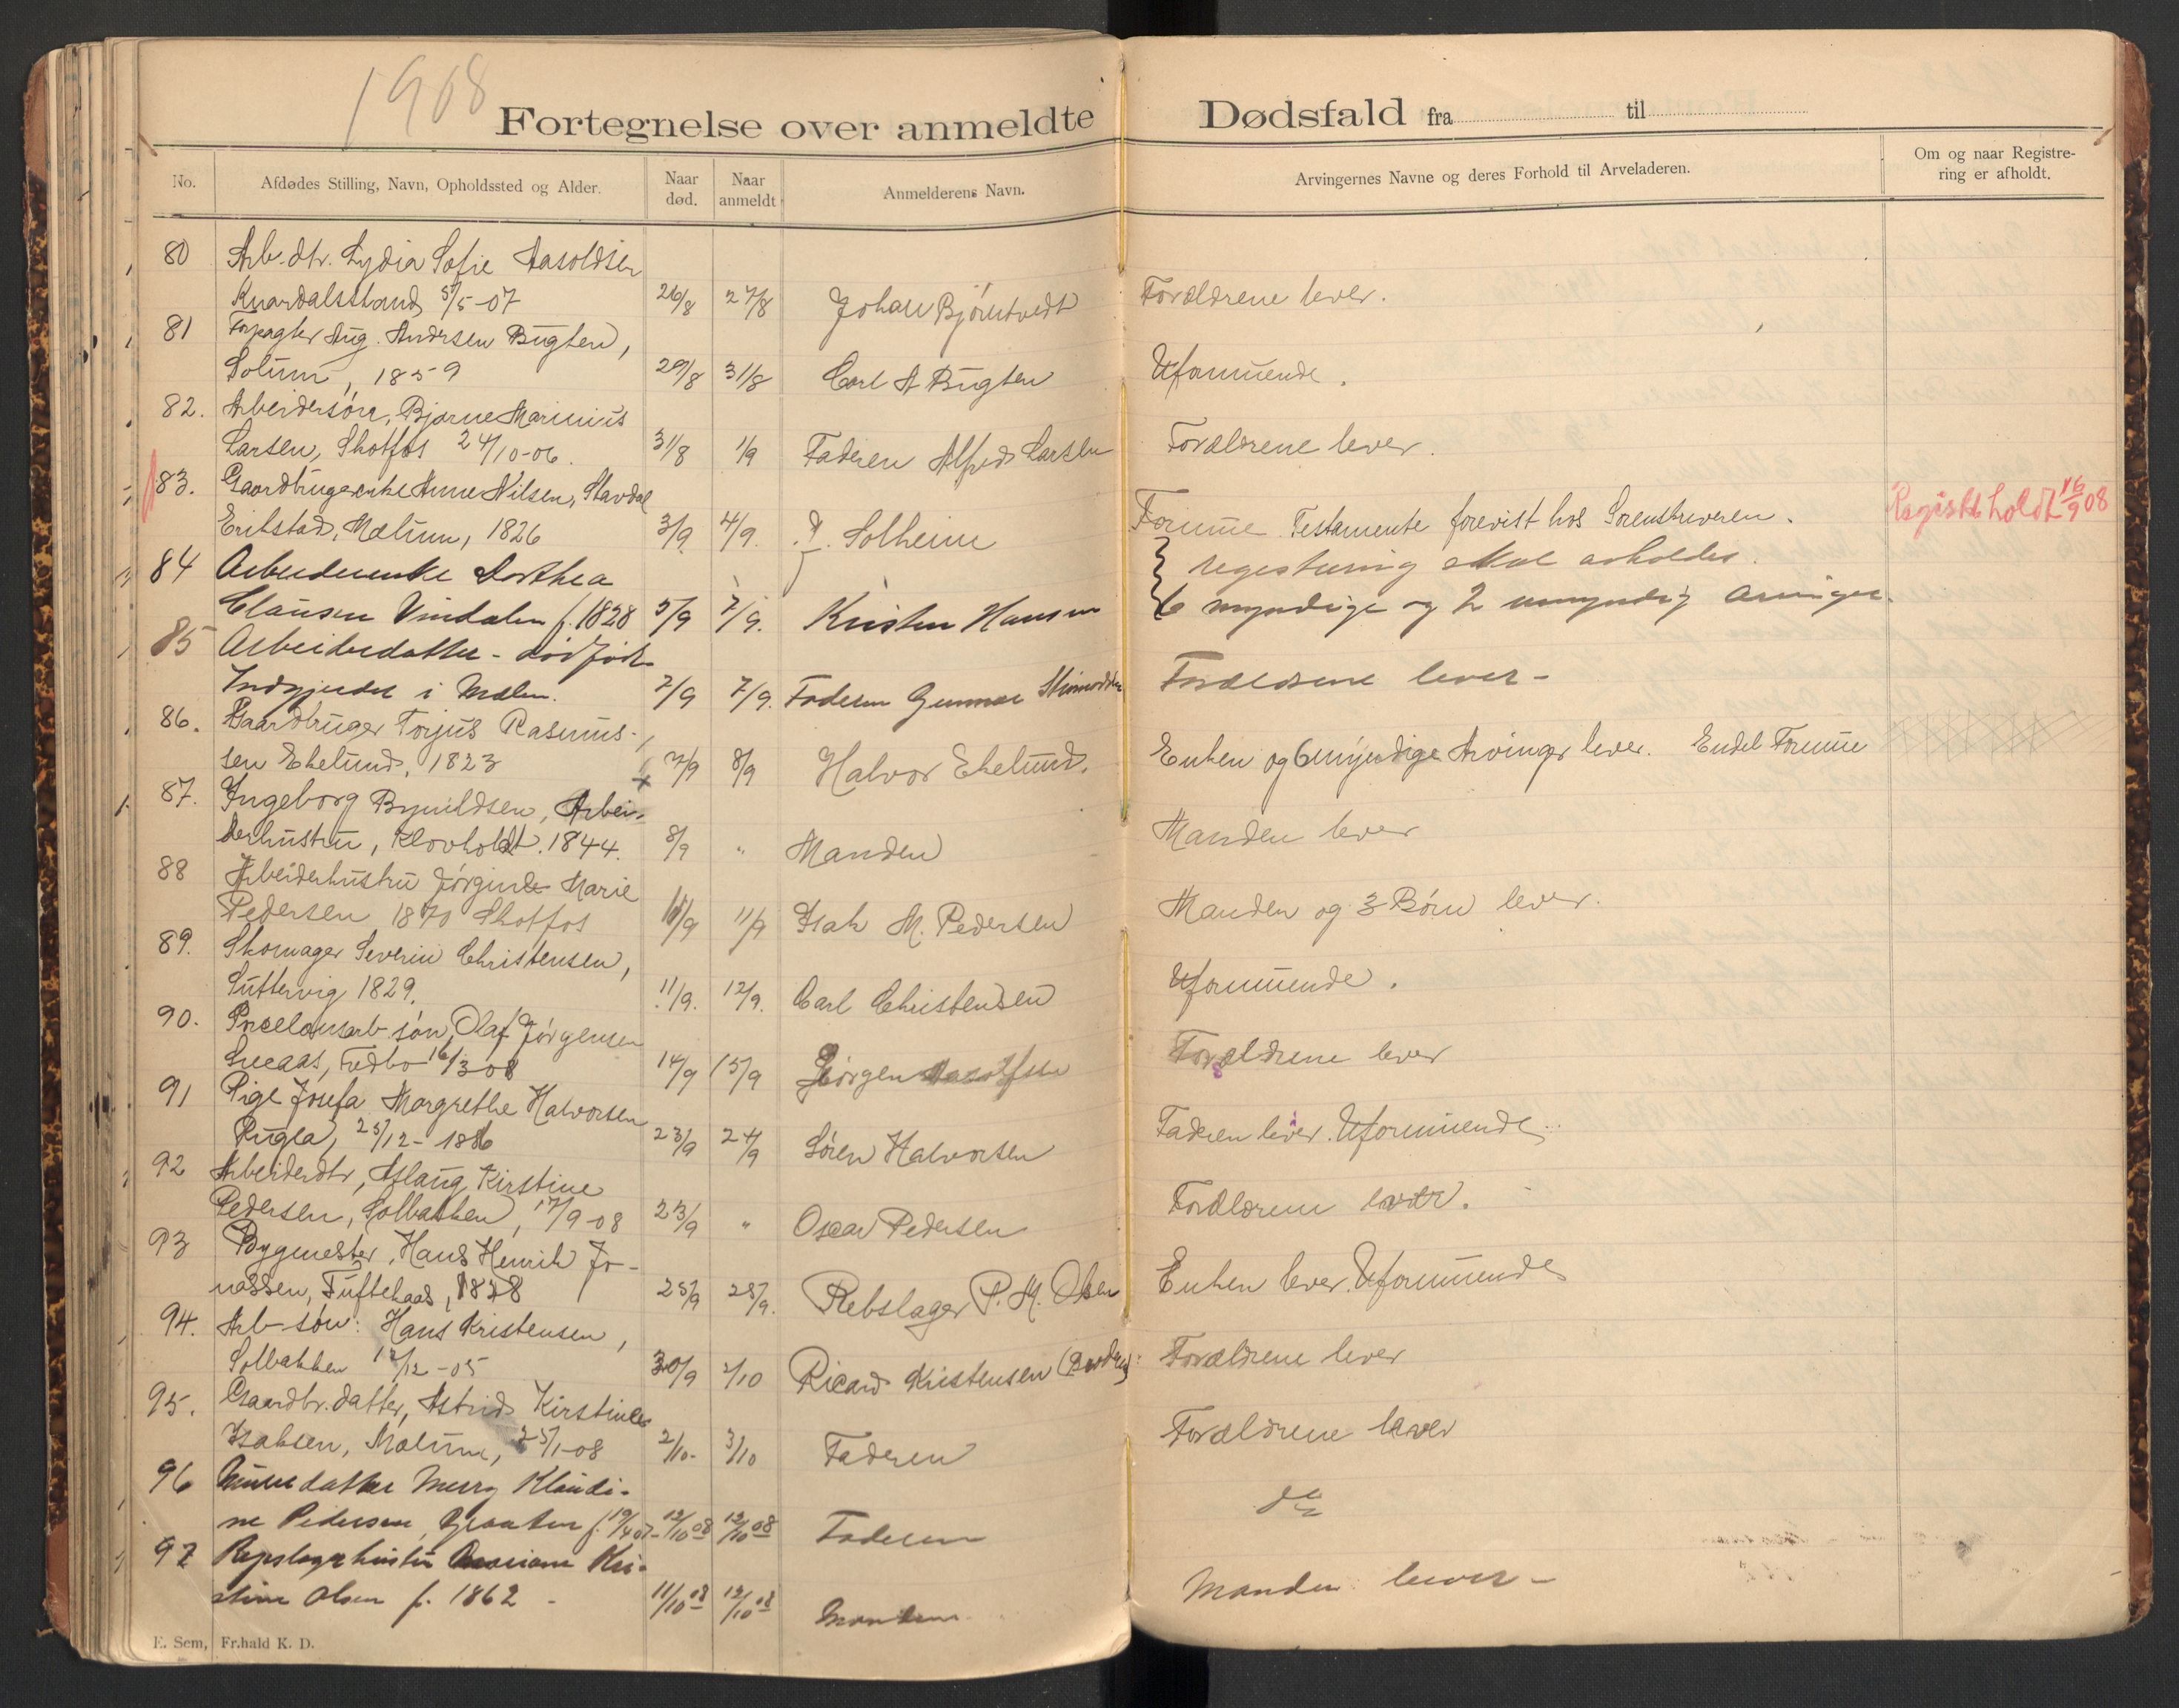 1908
Fortegnelse over anmeldte Dødsfald fra til
No. Afdødes Stilling, Navn, Opholdssted og Alder. Naar død. Naar anmeldt Anmelderens Navn. Arvingernes Navne og deres Forhold til Arveladeren. Om og naar Registrering er afholdt.
80 Arb. dtr. Lydia Sofie Aasoldsen
Knardalsstrand 5/5-07 26/8 27/8 Johan Bjørntvedt Forældrene lever.
81 Forpagter Aug. Andersen Bugten,
Solum, 1859 29/8 31/8 Carl A Bugten Uformuende.
82. Arbeidersøn, Bjarne Marinius
Larsen, Skotfos 24/10-06. 31/8 1/9 Faderen Alfred Larsen Forældrene lever.
83. Gaardbrugerenke Anne Nilsen, Stavdal
Erikstad, Mælum, 1826 3/9 4/9. Solheim Formue Testamente forevist hos Sorenskriveren. Registr. holdt 16/9 08
registrering skal avholdes.
84 Arbeiderenke Dorthea
Clausen Vindalen f. 1828 5/9 7/9. Kristen Hansen 6 myndige og 2 umyndig arvinger.
85 Arbeiderdatter - dødfødt
Indgjerdet i Mælum. 7/9 7/9. Faderen Gunnar Forældrene lever -
86. Gaardbruger Torjus Rasmus-
sen Ekelund, 1823 7/9 8/9 Halvor Ekelund. Enken og 6 myndige Arvinger lever. Endel Formue
87. Ingeborg Brynildsen, Arbei-
derhustru, Klovholdt. 1844. 8/9 " Manden Manden lever
88 Arbeiderhustru Jørgine Marie
Pedersen 1870 Skotfos 10/9 11/9 Isak M. Pedersen Manden og 3 Børn lever.
89. Skomager Severin Christensen,
Luttervig 1829. 11/9. 12/9. Carl Christensen Uformuende.
90. Porcelænsarb søn, Olaf Jørgensen
Lucaas, Fredbo 16/3-08 14/9 15/9 Jørgen Forældrene lever
91 Pige Josefa Margrethe Halvorsen
Rugla, 25/12-1886 23/9 24/9 Søren Halvorsen Faderen lever. Uformuende.
92 Arbeiderdtr, Aslaug Kirstine
Pedersen, Solbakken, 17/9-08 23/9 " Oscar Pedersen Forældrene lever.
93 Bygmester, Hans Henrik Jo-
nassen, Tuftekaas, 1828 25/9 28/9. Rebslager P. M. Olsen Enken lever. Uformuende
94. Arb-søn: Hans Kristensen,
Solbakken 12/12-05 30/9 2/10 Ricard Kristensen (Brodren) Forældrene lever
95. Gaardbr. datter, Astrid Kirstine
Isaksen, Mælum, 25/1-08 2/10- 3/10 Faderen Forældrene lever
96 datter Merry Klaudi-
ne Pedersen, Graaten f. 19/4 07- 12/10 08 12/10 08 Faderen do
97 Repslagerhustru Mariane Kri-
stine Olsen f. 1862 - 11/10 08 12/10 08 Manden Manden lever -
E. Sem, Fr.hald K. D.